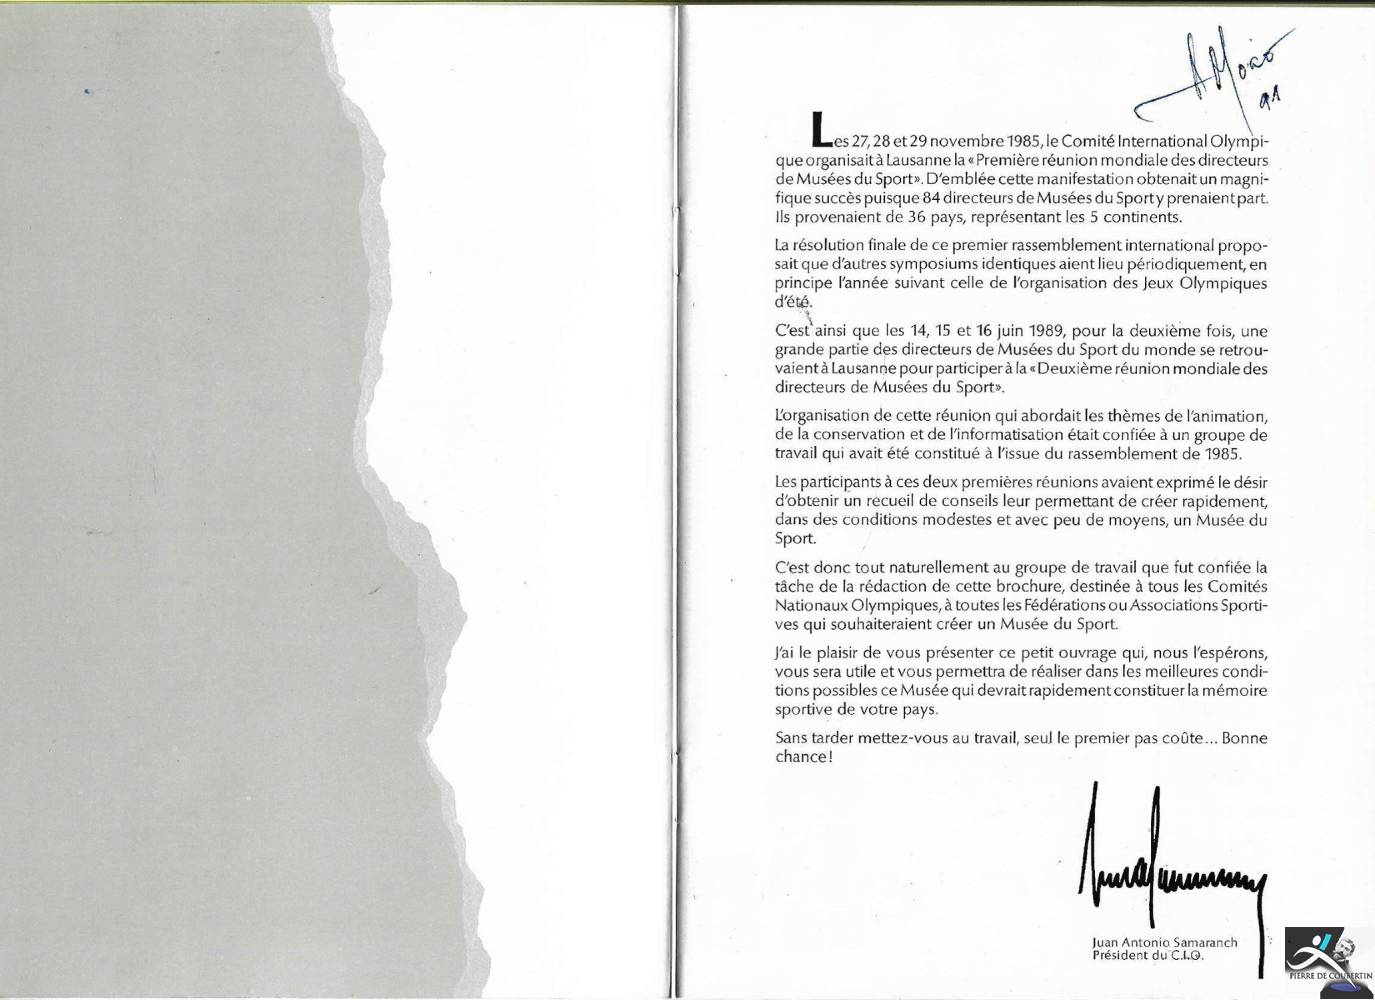 91
Les 27, 28 et 29 novembre 1985, le Comité International Olympi-
que organisait à Lausanne la «Première réunion mondiale des directeurs
de Musées du Sport». D'emblée cette manifestation obtenait un magni-
fique succès puisque 84 directeurs de Musées du Sport y prenaient part.
Ils provenaient de 36 pays, représentant les 5 continents.
La résolution finale de ce premier rassemblement international propo-
sait que d'autres symposiums identiques aient lieu périodiquement, en
principe l'année suivant celle de l'organisation des Jeux Olympiques
d'été.
C'est ainsi que les 14, 15 et 16 juin 1989, pour la deuxième fois, une
grande partie des directeurs de Musées du Sport du monde se retrou-
vaient à Lausanne pour participer à la «Deuxième réunion mondiale des
directeurs de Musées du Sport».
L'organisation de cette réunion qui abordait les thèmes de l'animation,
de la conservation et de l'informatisation était confiée à un groupe de
travail qui avait été constitué à l'issue du rassemblement de 1985.
Les participants à ces deux premières réunions avaient exprimé le désir
d'obtenir un recueil de conseils leur permettant de créer rapidement,
dans des conditions modestes et avec peu de moyens, un Musée du
Sport.
C'est donc tout naturellement au groupe de travail que fut confiée la
tâche de la rédaction de cette brochure, destinée à tous les Comités
Nationaux Olympiques, à toutes les Fédérations ou Associations Sporti-
ves qui souhaiteraient créer un Musée du Sport.
J'ai le plaisir de vous présenter ce petit ouvrage qui, nous l'espérons,
vous sera utile et vous permettra de réaliser dans les meilleures condi-
tions possibles ce Musée qui devrait rapidement constituer la mémoire
sportive de votre pays.
Sans tarder mettez-vous au travail, seul le premier pas coûte... Bonne
chance!
Juan Antonio Samaranch
Président du C.I.O.
PIERRE DE COUBERTIN